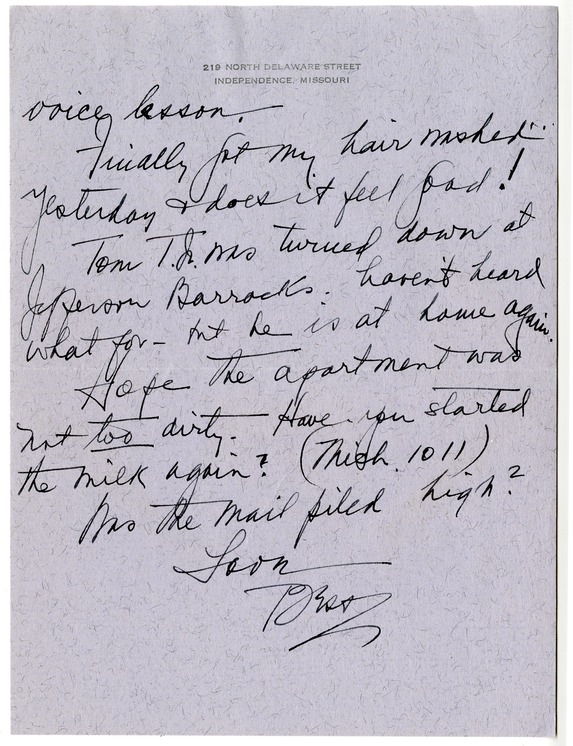 219 NORTH DELAWARE STREET
INDEPENDENCE, MISSOURI
voice lesson.
Finally got my hair washed
yesterday & does it feel good!
Tom T. Jr. was turned down at
Jefferson Barracks. haven't heard
what for - but he is at home again.
Hope the apartment was
not too dirty. Have you started
the milk again? (Mich. 1011)
Was the mail piled high?
Soon
Bess